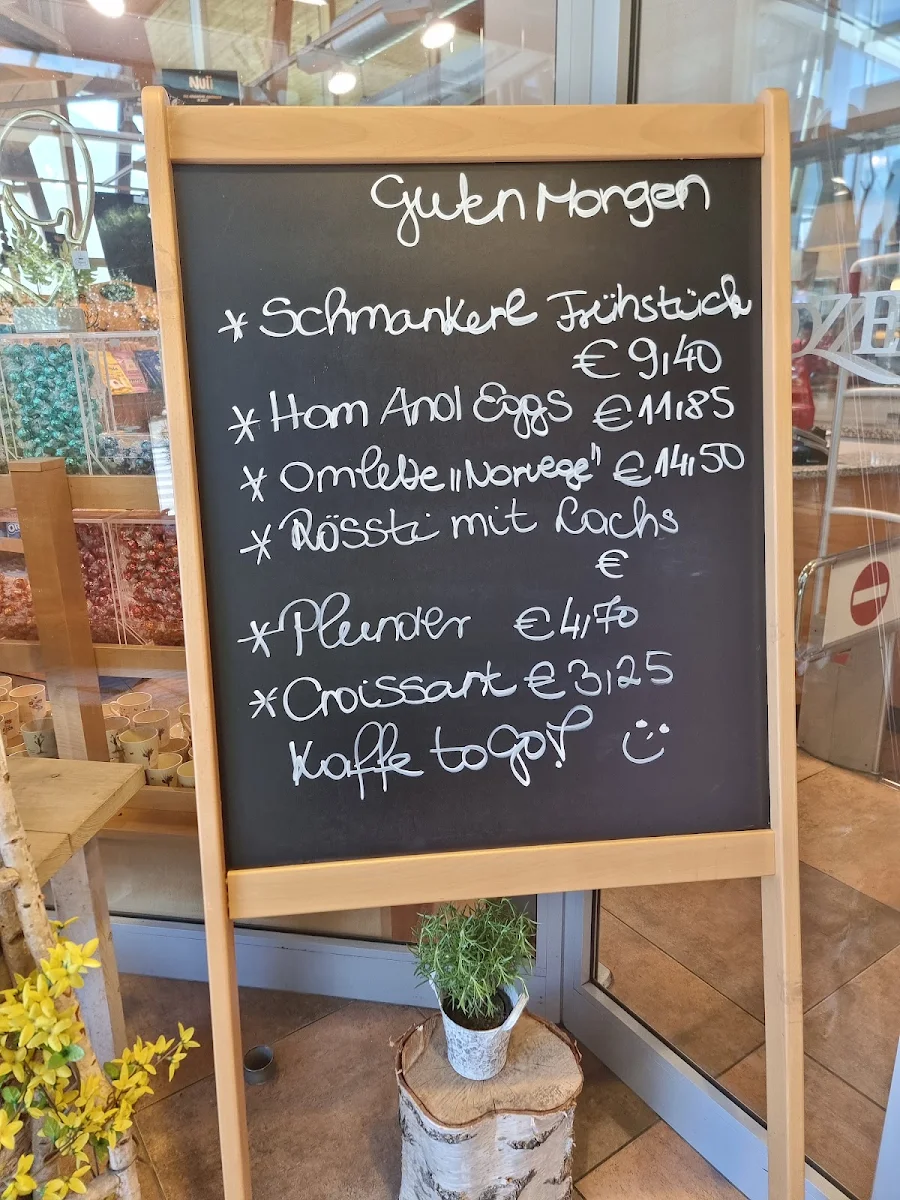 Guten Morgen
* Schmankerl Frühstück
€ 9,40
* Ham And Eggs € 11,85
* Omlette „Norvege" € 14,50
* Rössti mit Lachs
€
* Plunder € 4,70
* Croissant € 3,25
Kaffe to Go! :)